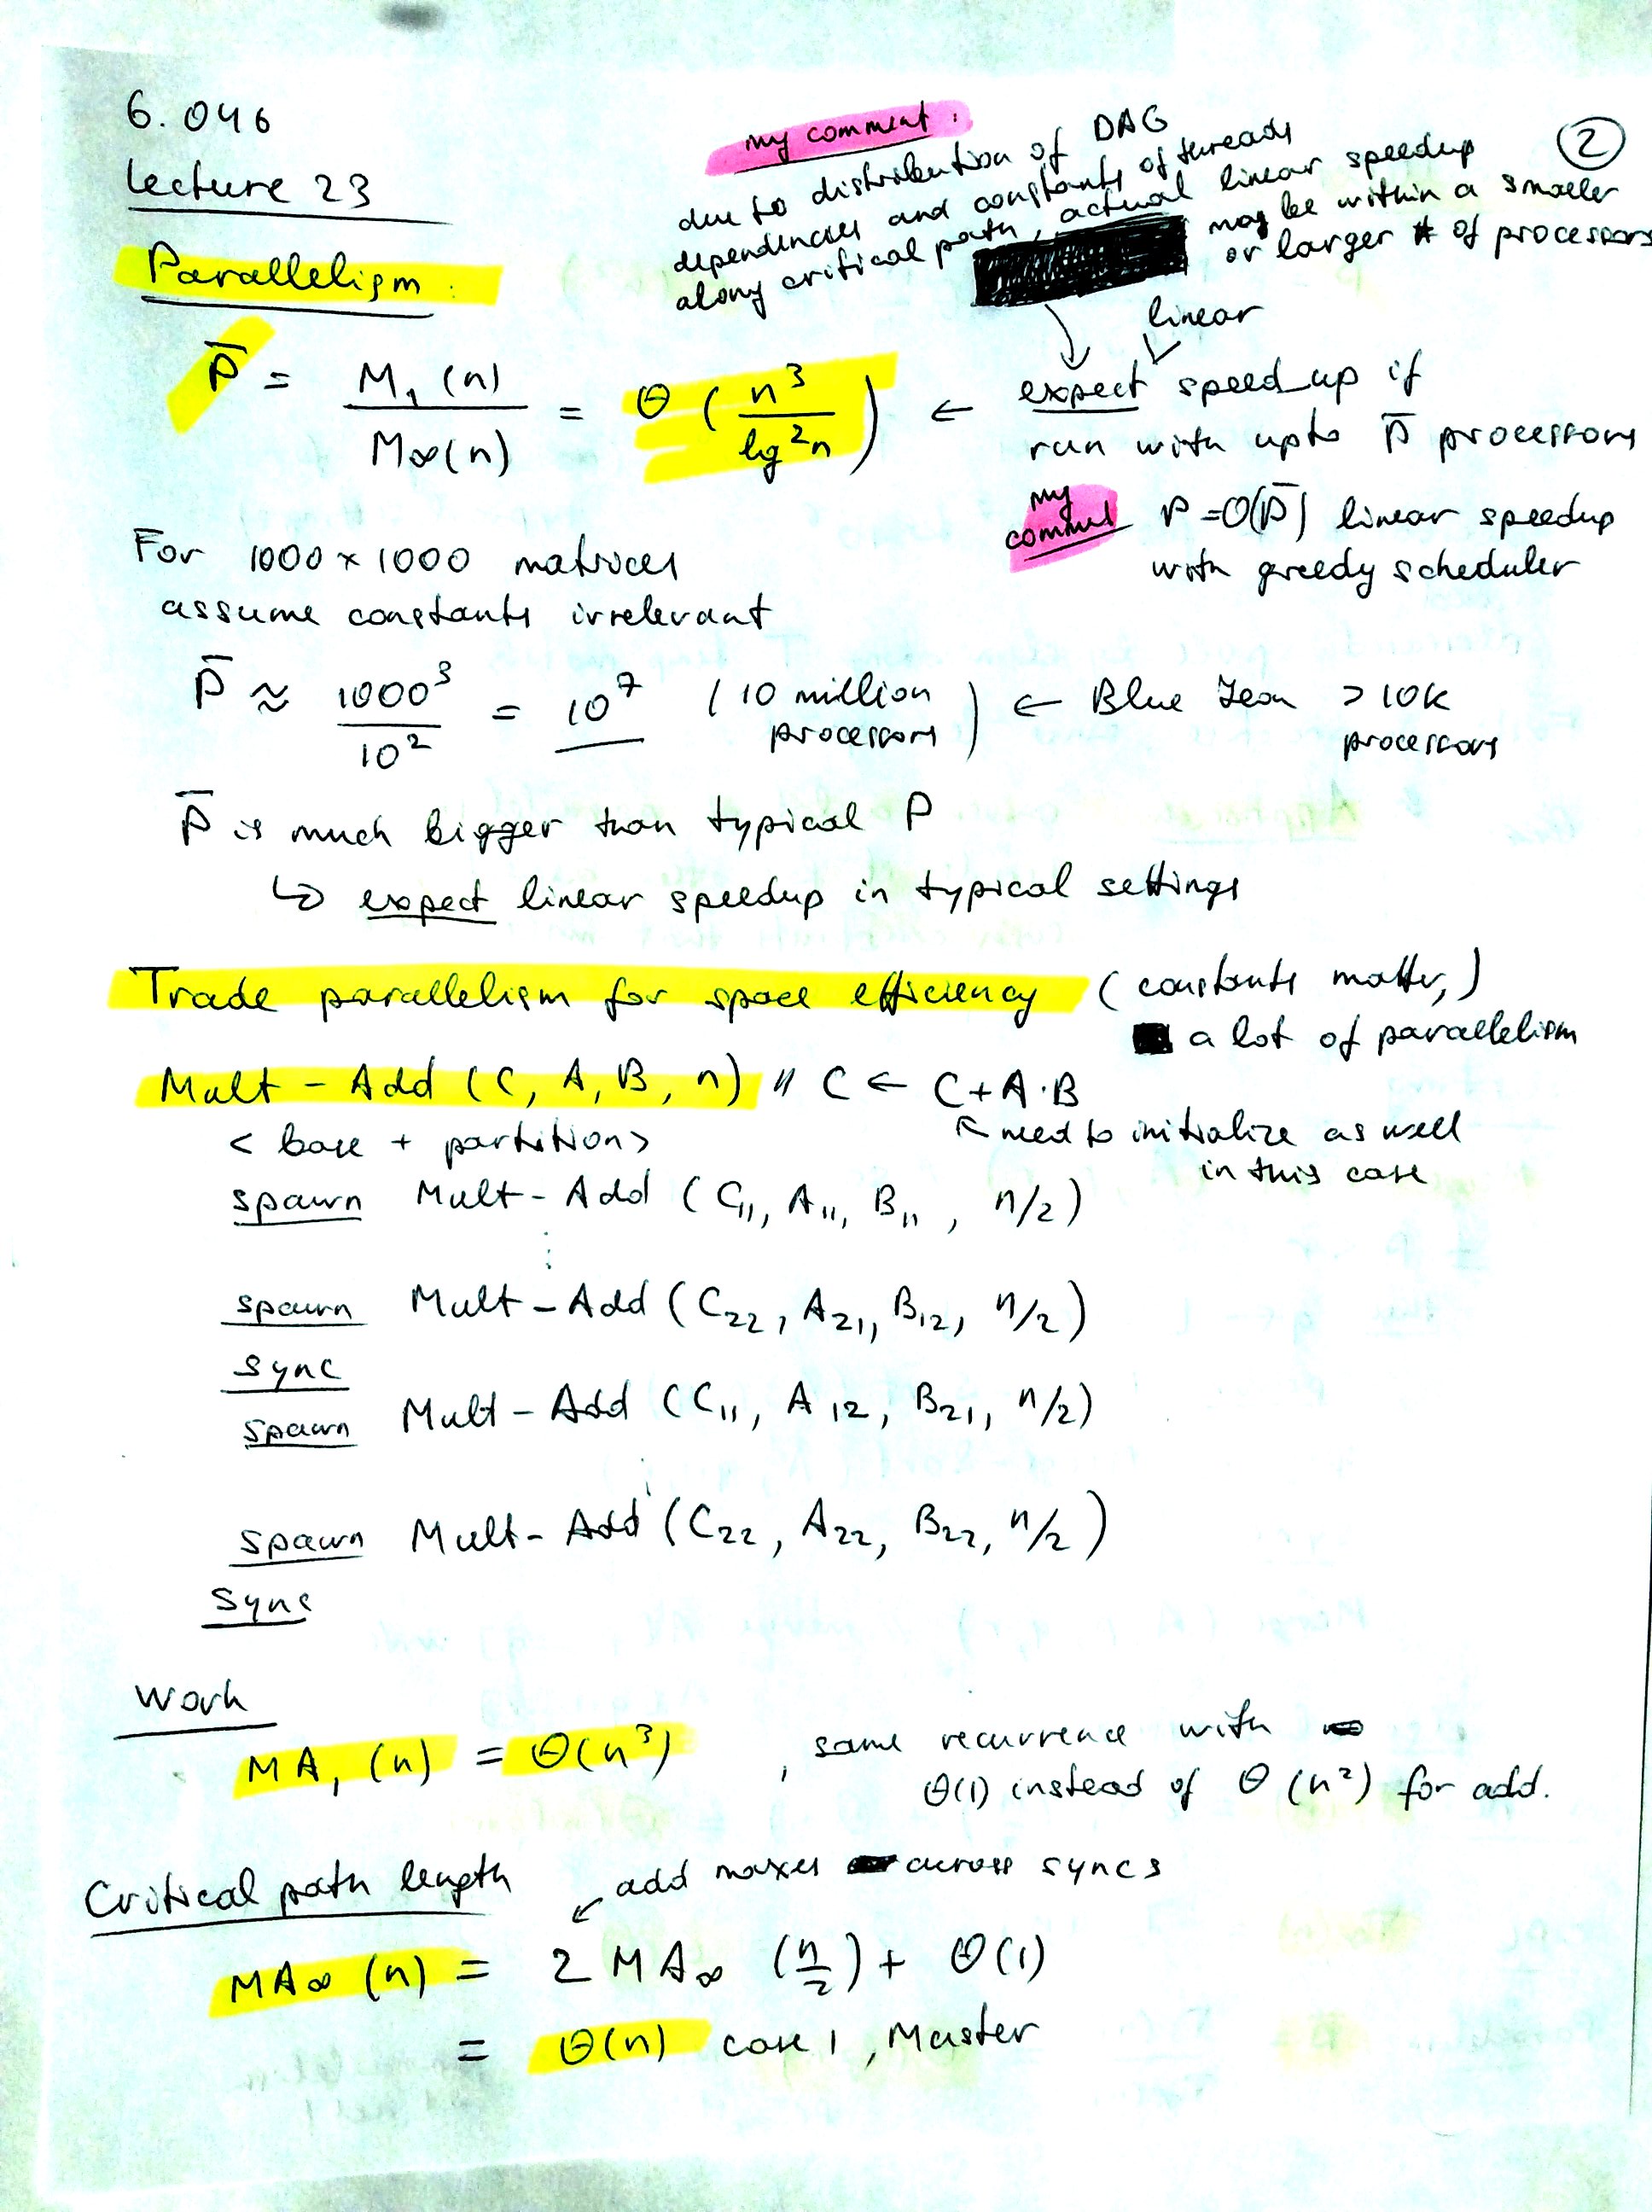 6.046
Lecture 23
2
my comment:
due to distribution of DAG
dependencies and constants of threads
along critical path, actual linear speedup
may be within a smaller
or larger # of processors
Parallelism:
linear
P̄ = M₁(n) / M∞(n) = Θ(n³ / lg²n) ← expect speedup if
run with upto P̄ processors
my comment P = O(P̄) linear speedup
with greedy scheduler
For 1000 × 1000 matrices
assume constants irrelevant
P̄ ≈ 1000³ / 10² = 10⁷ (10 million processors) ← Blue Jean > 10K processors
P̄ is much bigger than typical P
↳ expect linear speedup in typical settings
Trade parallelism for space efficiency (constants matter,)
a lot of parallelism
Mult-Add (C, A, B, n) // C ← C+A·B
↖ need to initialize as well
in this case
< base + partition>
spawn Mult-Add (C₁₁, A₁₁, B₁₁, n/2)
⋮
spawn Mult-Add (C₂₂, A₂₁, B₁₂, n/2)
sync
spawn Mult-Add (C₁₁, A₁₂, B₂₁, n/2)
⋮
spawn Mult-Add (C₂₂, A₂₂, B₂₂, n/2)
sync
Work
MA₁(n) = Θ(n³) , same recurrence with
Θ(1) instead of Θ(n²) for add.
Critical path length
↙ add maxes across syncs
MA∞(n) = 2 MA∞(n/2) + Θ(1)
= Θ(n) case 1, Master